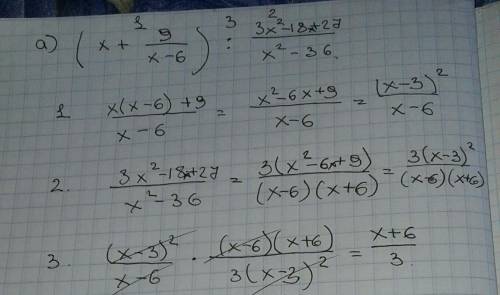 а) (x + 9/(x-6)) : (3x²-18x+27)/(x²-36)
1 3 2
1. (x(x-6)+9)/(x-6) = (x²-6x+9)/(x-6) = (x-3)²/(x-6)
2. (3x²-18x+27)/(x²-36) = 3(x²-6x+9)/((x-6)(x+6)) = 3(x-3)²/((x-6)(x+6))
3. (x-3)²/(x-6) · (x-6)(x+6)/(3(x-3)²) = (x+6)/3